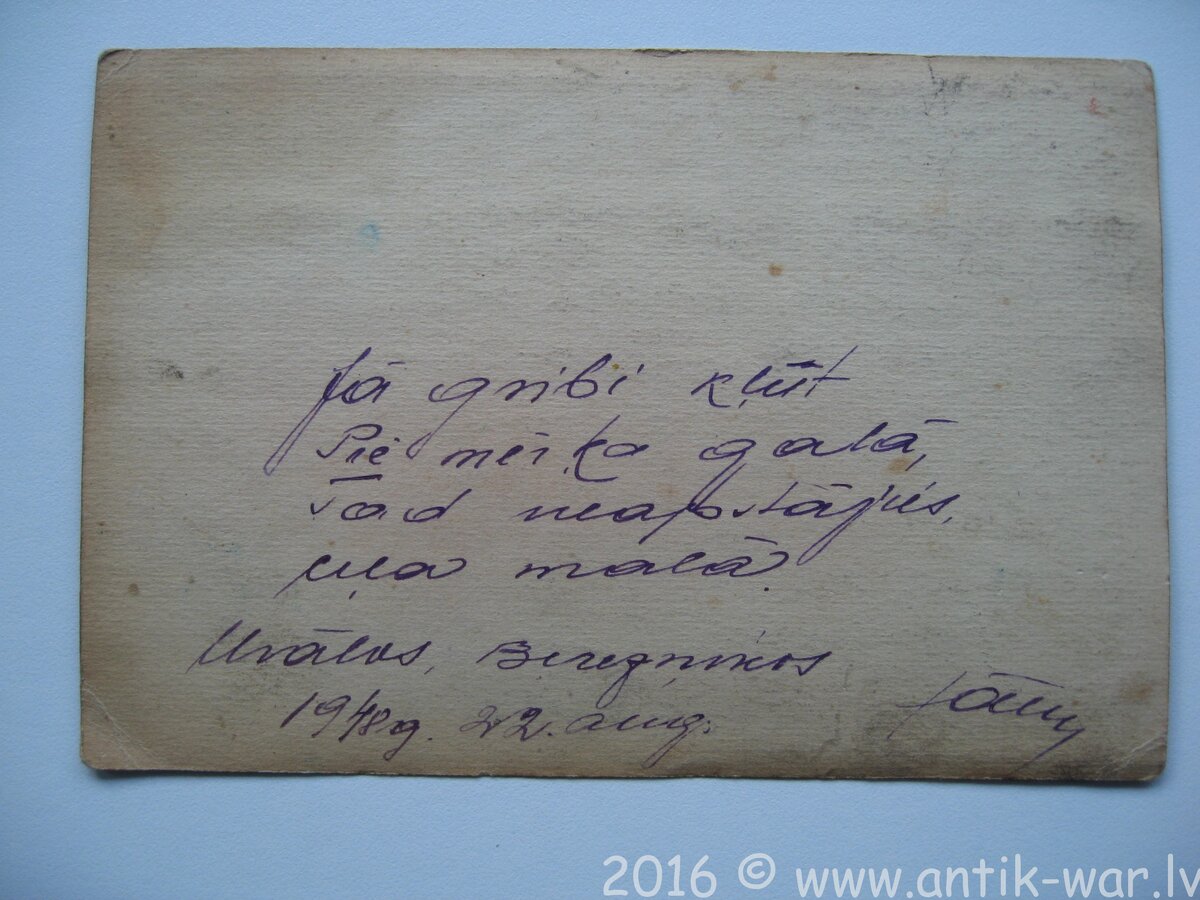 Jā gribi kļūt
Pie mērķa galā,
Tad neapstājies,
ceļa malā.
Urālos, Berezņikos
1948g. 22. aug.
Jānis
2016 © www.antik-war.lv